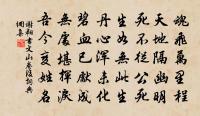 魂飛萬里程
天地隔幽明
死不從公死
生如無此生
丹心渾未化
碧血已先成
無處堪揮淚
吾今變姓名
謝翱書文山卷後詞典
網集